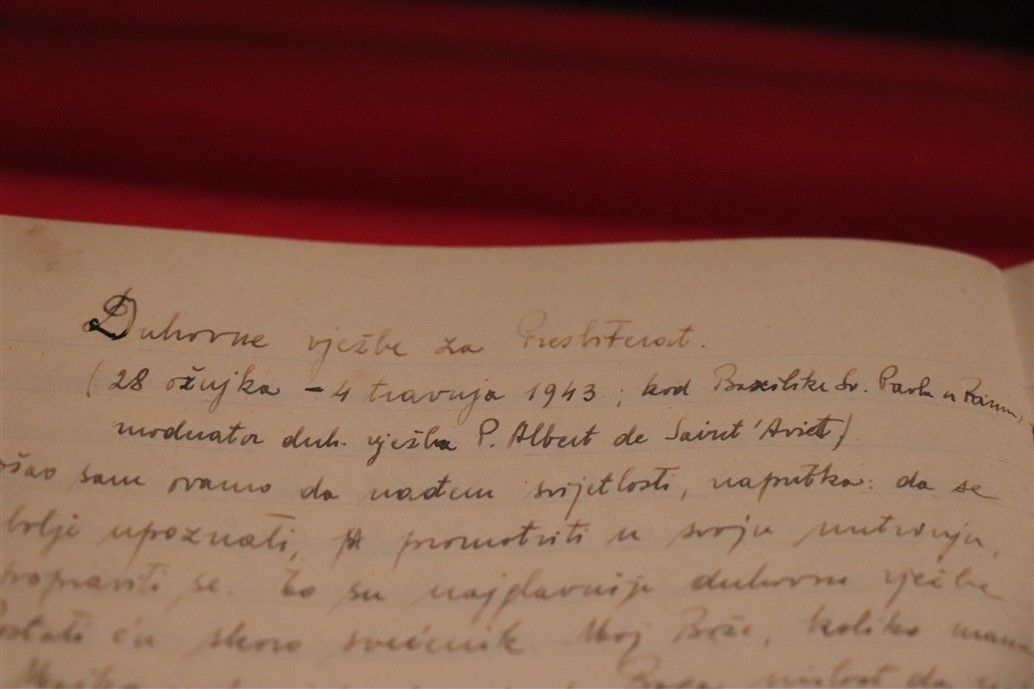 Duhovne vježbe za Presbiterat.
(28 ožujka - 4 travnja 1943; kod Bazilike Sv. Pavla u Rimu,
duh. vježba P. Albert de Saint'Aviet)
ošao sam ovamo da nađem svijetlosti, naputka: da se
bolje upoznati, promotriti u svoju nutrinju,
popraviti se. To su najglavnije duhovne vježbe
ostati ću skoro svećenik Moj Bože, koliko mana
milost da